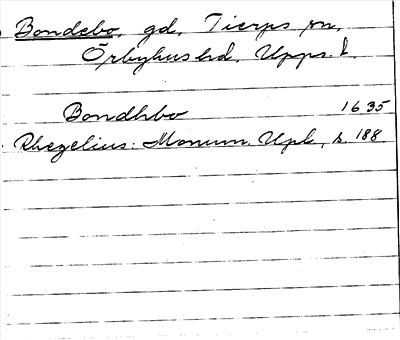 Bondebo, gd, Tierps sn,
Örbyhus hd, Upps. l.
Bondhbo 1635
Rhezelius: Monum. Upl., s. 188